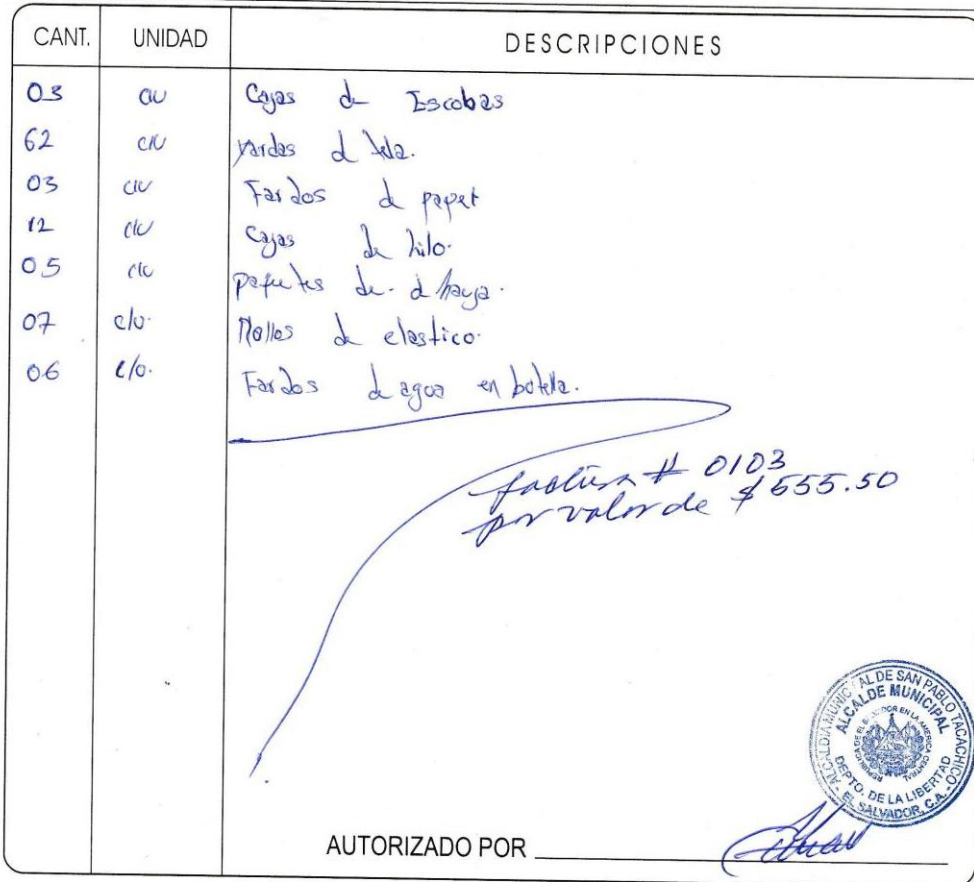 CANT. UNIDAD DESCRIPCIONES
03 c/u Cajas de Escobas
62 c/u yardas d tela.
03 c/u Fardos de papel
12 c/u Cajas de hilo.
05 c/u paquetes de
07 c/u. Rollos de elastico.
06 c/u. Fardos de agua en botella.
factura # 0103
por valor de $
ALCALDIA MUNICIPAL DE SAN PABLO TACACHICO
ALCALDE MUNICIPAL
REPUBLICA DE EL SALVADOR EN LA AMERICA CENTRAL
DEPTO. DE LA LIBERTAD
EL SALVADOR, C.A.
AUTORIZADO POR